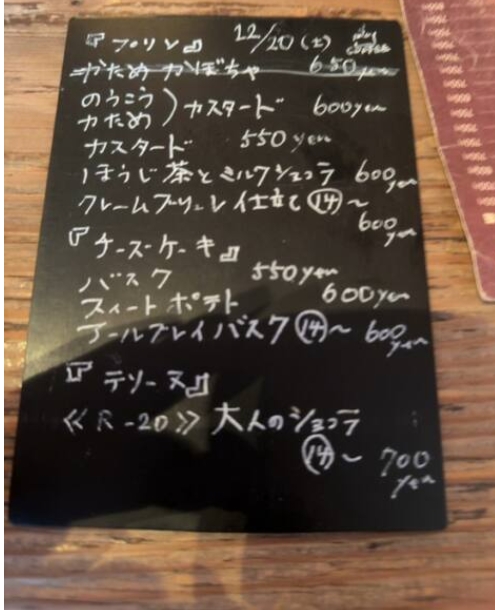 『プリン』 12/20(土)
かためかぼちゃ 650yen
のうこう
かため)カスタード 600yen
カスタード 550yen
ほうじ茶とミルクショコラ 600yen
クレームブリュレ仕立て⑭~
600yen
『チーズケーキ』
バスク 550yen
スィートポテト 600yen
ブールブレイバスク⑭~ 600yen
『テリーヌ』
≪R-20≫大人のショコラ
⑭~ 700yen